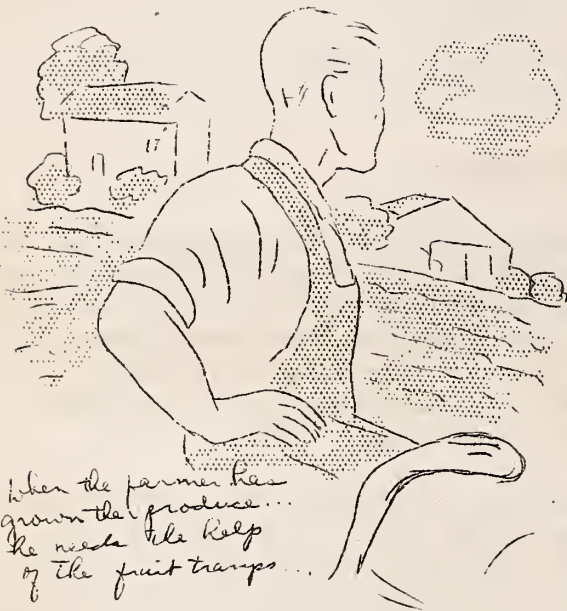 When the farmer has
grown the produce...
he needs the help
of the fruit tramps...